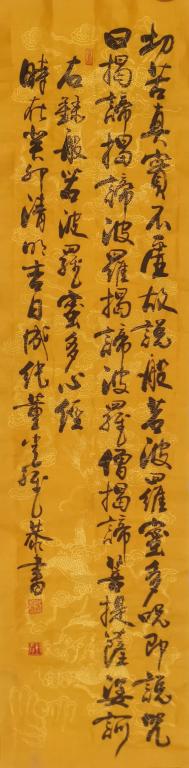 切苦真實不虛故說般若波羅蜜多咒即說咒
曰揭諦揭諦波羅揭諦波羅僧揭諦菩提薩婆訶
右錄般若波羅蜜多心經
時在癸卯清明吉日成純董
恭書